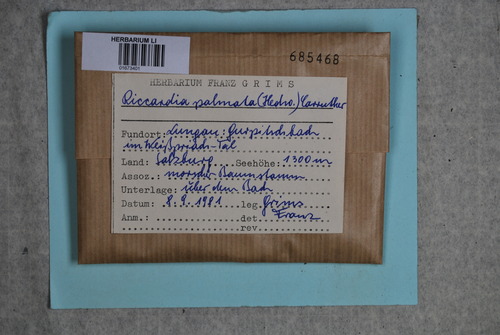 HERBARIUM LI
685468
HERBARIUM FRANZ GRIMS
Riccardia palmata (Hedw.) Carruther
Fundort: Lungau: Gurpitschbach
im Weißpriach-Tal
Land: Salzburg Seehöhe: 1300m
Assoz. morscher Baumstamm
Unterlage: über dem Bach
Datum: 8.9.1981 leg. Grims
Anm.: det Franz
rev.